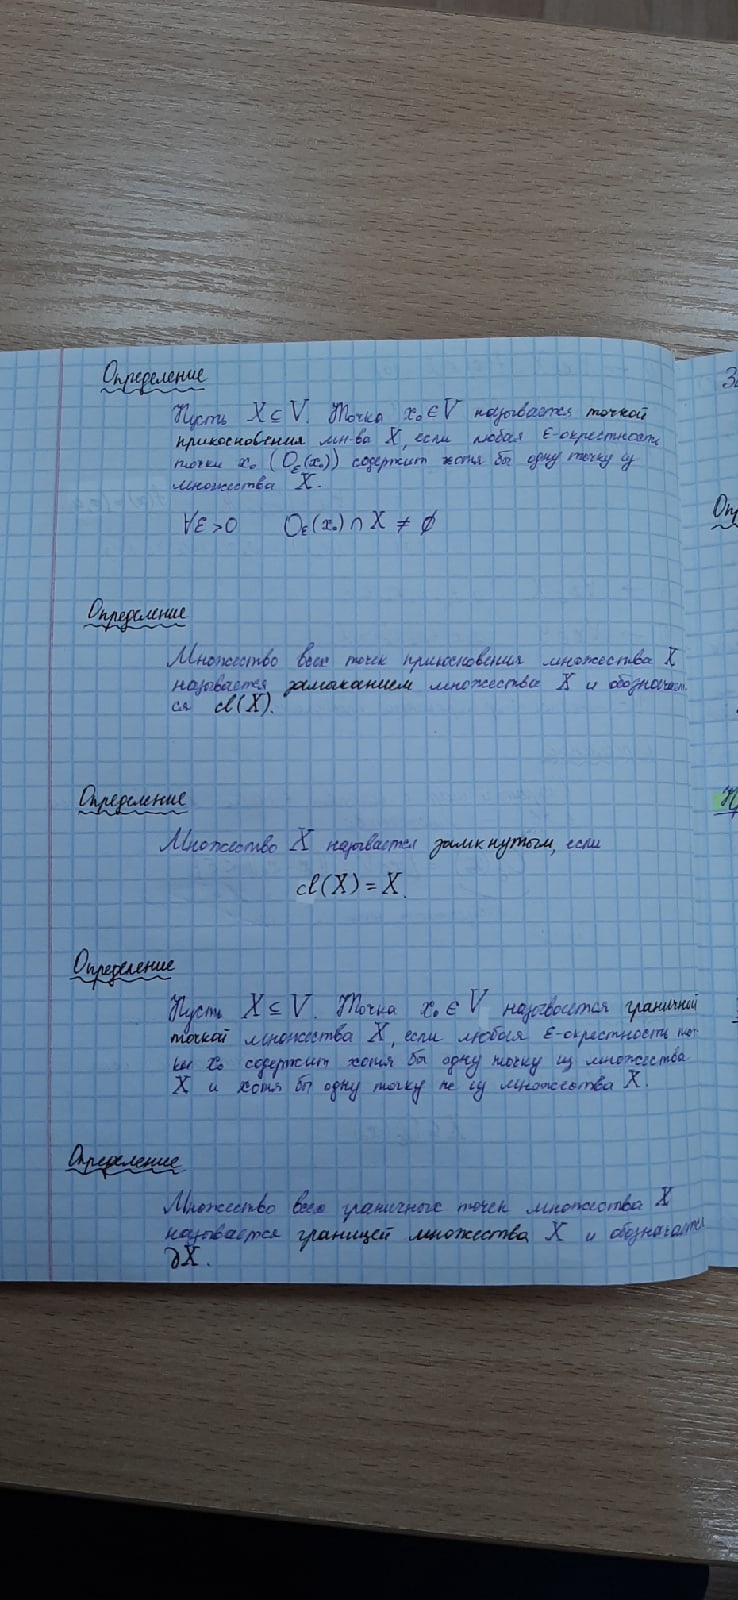 Определение
Пусть X ⊆ V. Точка x₀ ∈ V называется точкой
прикосновения мн-ва X, если любая ε-окрестность
точки x₀ (O_ε(x₀)) содержит хотя бы одну точку из
множества X.
∀ε > 0 O_ε(x₀) ∩ X ≠ ∅
Определение
Множество всех точек прикосновения множества X
называется замыканием множества X и обозначает-
ся cl(X).
Определение
Множество X называется замкнутым, если
cl(X) = X.
Определение
Пусть X ⊆ V. Точка x₀ ∈ V называется граничной
точкой множества X, если любая ε-окрестность точ-
ки x₀ содержит хотя бы одну точку из множества
X и хотя бы одну точку не из множества X.
Определение
Множество всех граничных точек множества X
называется границей множества X и обозначается
∂X.